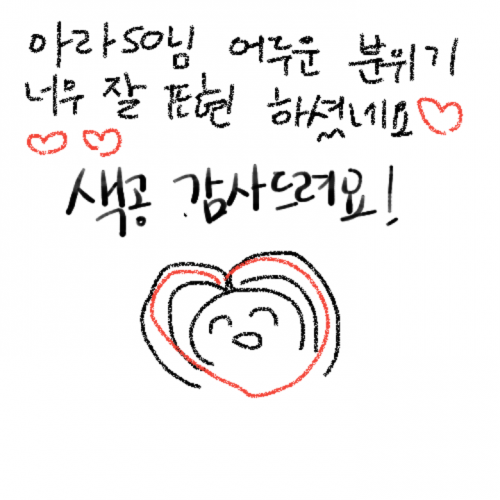 아라so님 어두운 분위기
너무 잘 표현 하셨네요
색공 감사드려요!